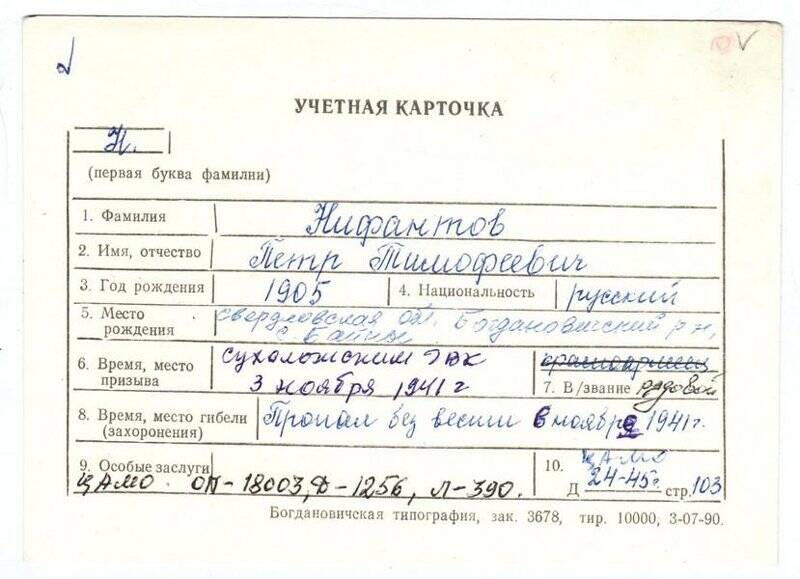 УЧЕТНАЯ КАРТОЧКА
Н.
(первая буква фамилии)
1. Фамилия Нифантов
2. Имя, отчество Петр Тимофеевич
3. Год рождения 1905 4. Национальность русский
5. Место рождения свердловская обл. Богдановичский р-н,
с. Байны
6. Время, место призыва сухоложским РВК
3 ноября 1941 г
красноармеец
7. В/звание рядовой
8. Время, место гибели (захоронения) Пропал без вести в ноябре 1941 г.
9. Особые заслуги
ЦАМО оп-18003, д-1256, л-390.
10. ЦАМО
Д 24-45г стр. 103
Богдановичская типография, зак. 3678, тир. 10000, 3-07-90.